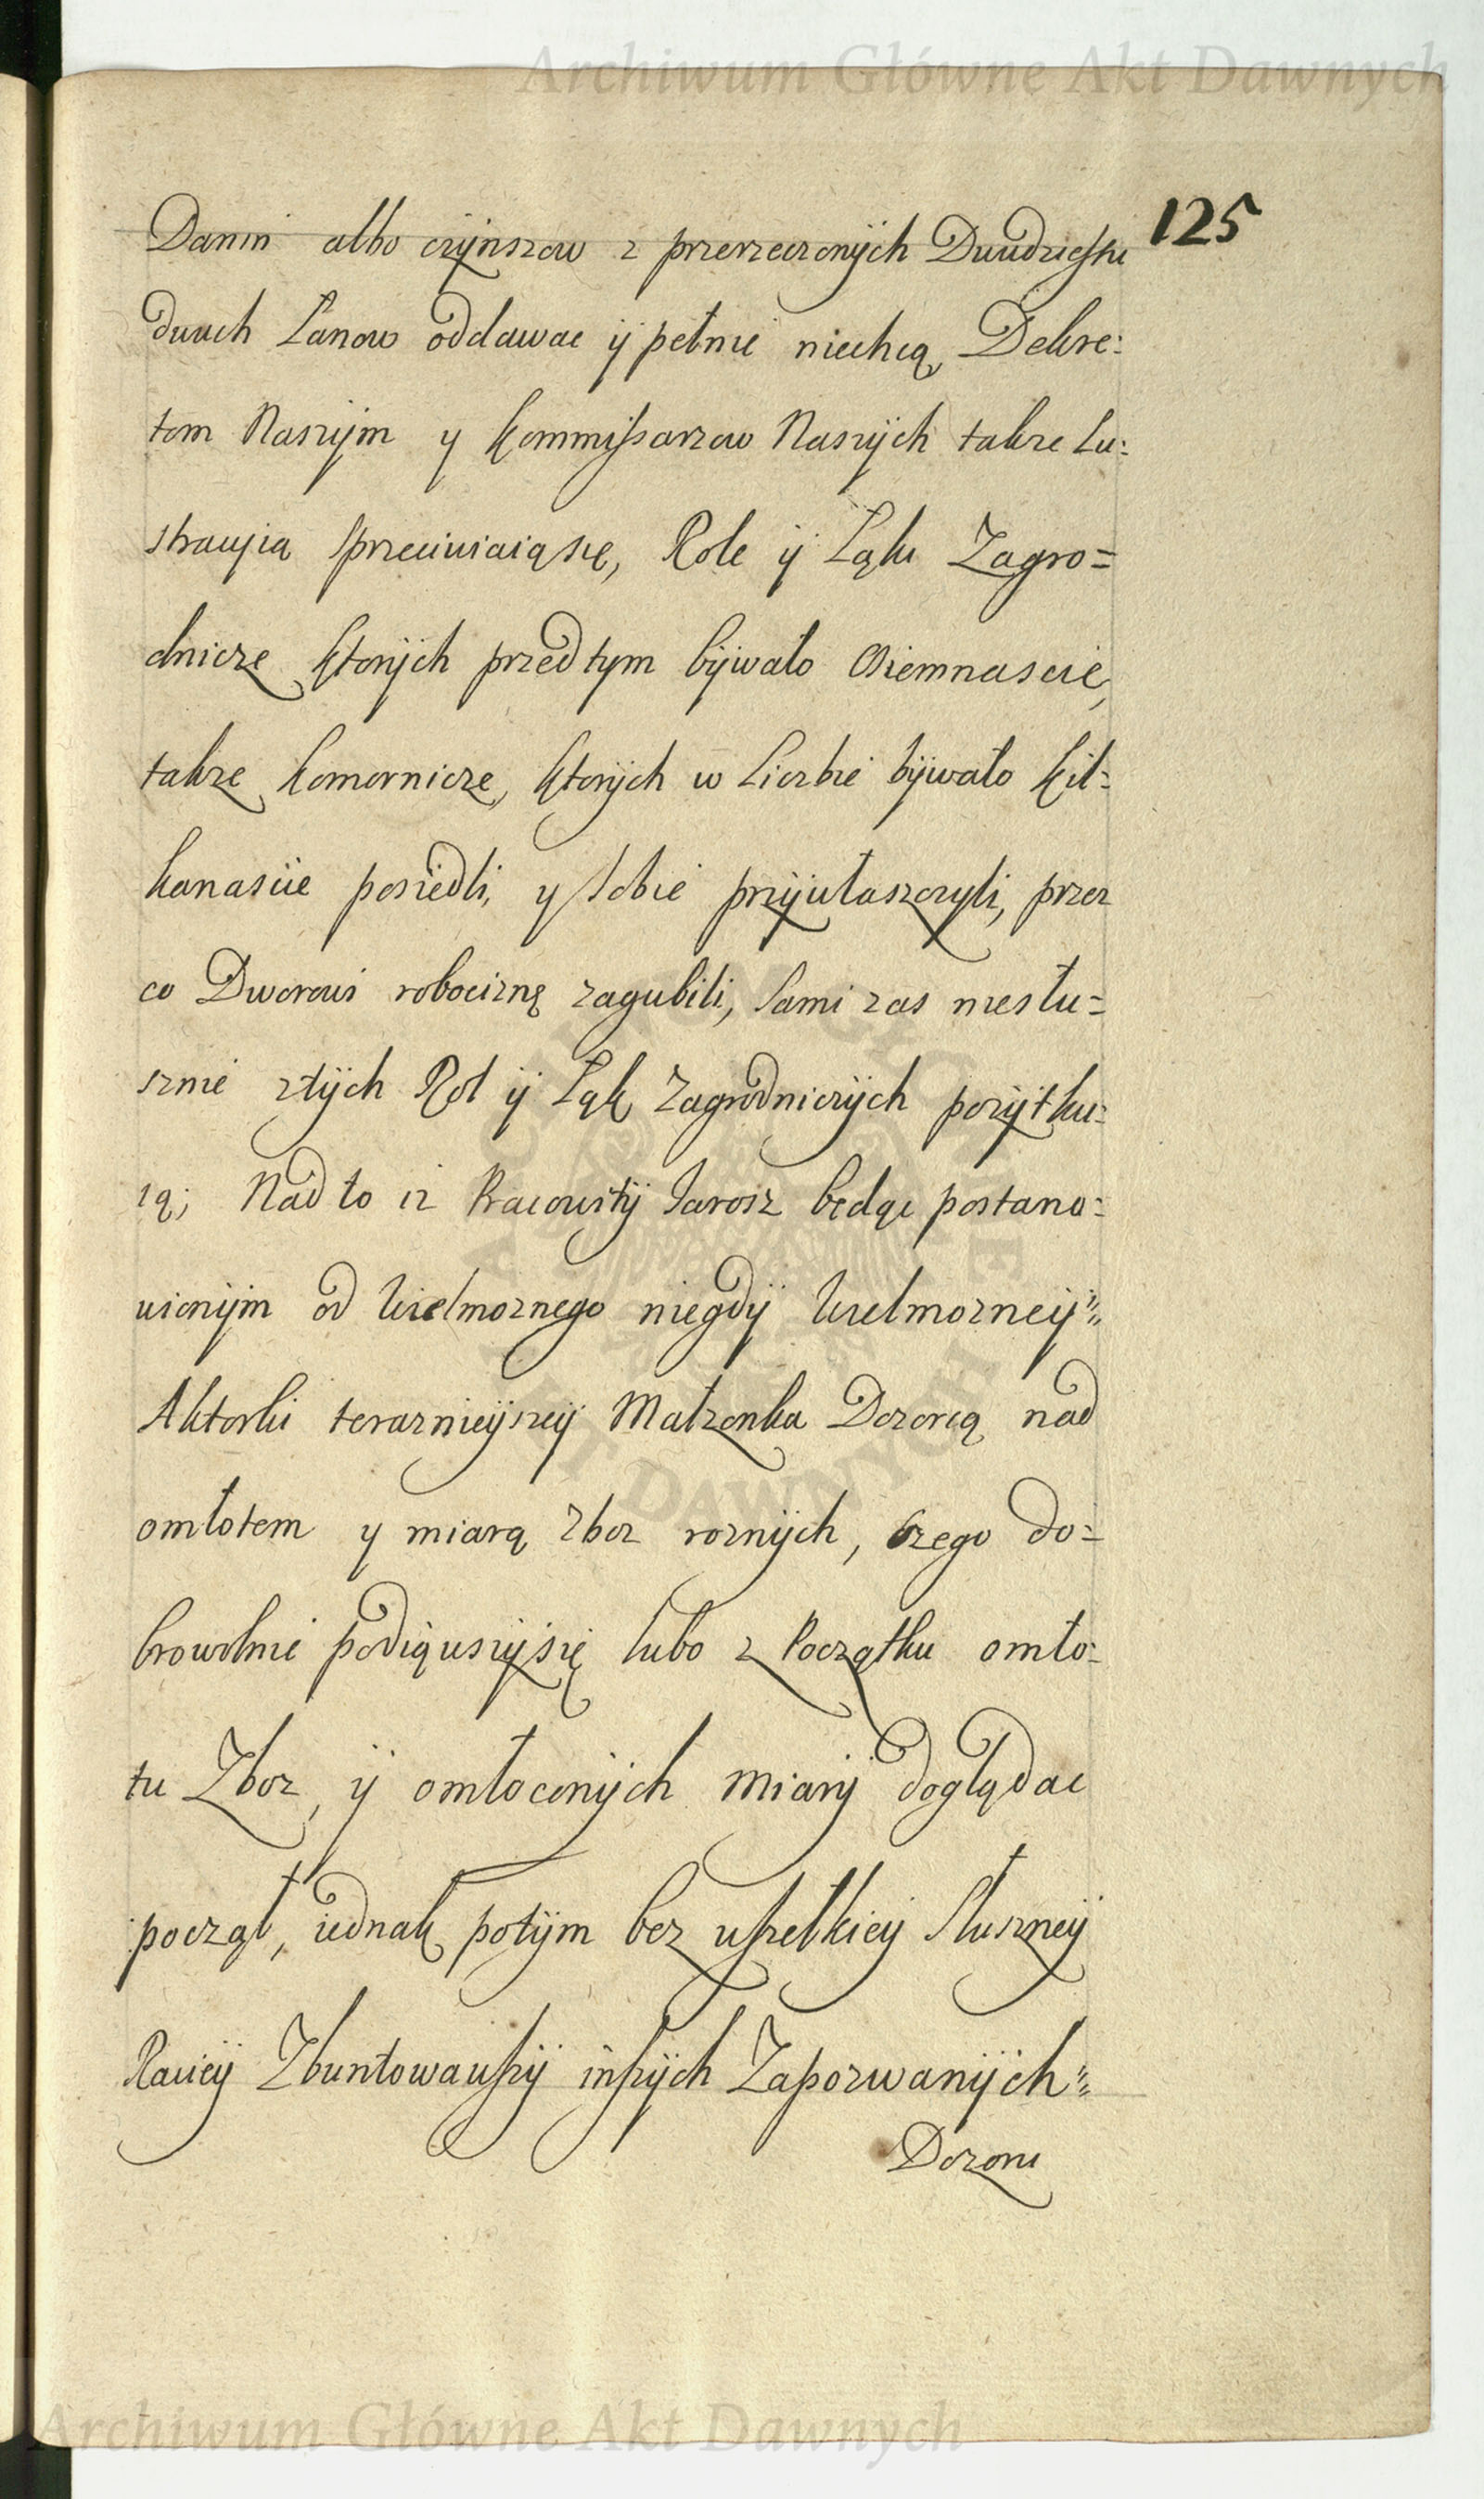 Archiwum Główne Akt Dawnych
125
Danin albo czÿnszow z przerzeczonÿch Dwudziestu
dwuch Łanow oddawac ÿ pełnic niechcą, Dekre:
tom Naszÿm y Kommissarzow Naszÿch takze Lu:
stracyia sprzeciwiaią się, Role ÿ Łąki Zagro=
dnicze ktorÿch przed tym bÿwało Osiemnascie,
takze komornicze, ktorÿch w Liczbie bÿwało kil:
kanascie posiedli, y sobie przÿwłaszczyli, przez
co Dworowi robociznę zagubili, sami zas niesłu=
sznie z tÿch Rol ÿ Łąk Zagrodniczÿch pozÿtku:
ią; Nad to iz Pracowitÿ Jarosz będąc postano:
wionÿm od Wielmoznego niegdÿ Wielmozneÿ
Aktorki teraznieÿszeÿ Małzonka Dozorcą nad
omłotem y miarą Zboz roznÿch, czego do=
browolnie podiąwszÿ się lubo z Początku omło:
tu Zboz, ÿ omłoconÿch miarÿ doglądac
począł, iednak potÿm bez wszelkieÿ słuszneÿ
Racieÿ Zbuntowawszÿ inszÿch Zapozwanÿch
Dozoru
ARCHIWUM GŁÓWNE AKT DAWNYCH
Archiwum Główne Akt Dawnych